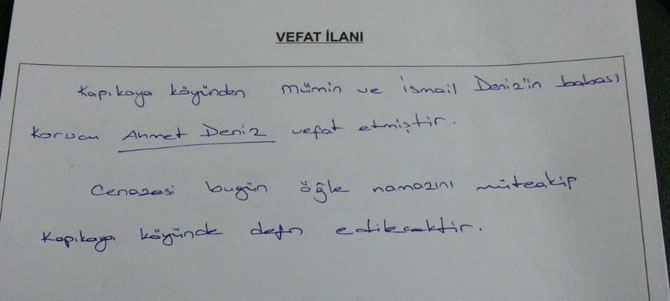 VEFAT İLANI
Kapıkaya köyünden mümin ve İsmail Deniz'in babası
Korucu Ahmet Deniz vefat etmiştir.
Cenazesi bugün öğle namazını müteakip
Kapıkaya köyünde defn edilecektir.